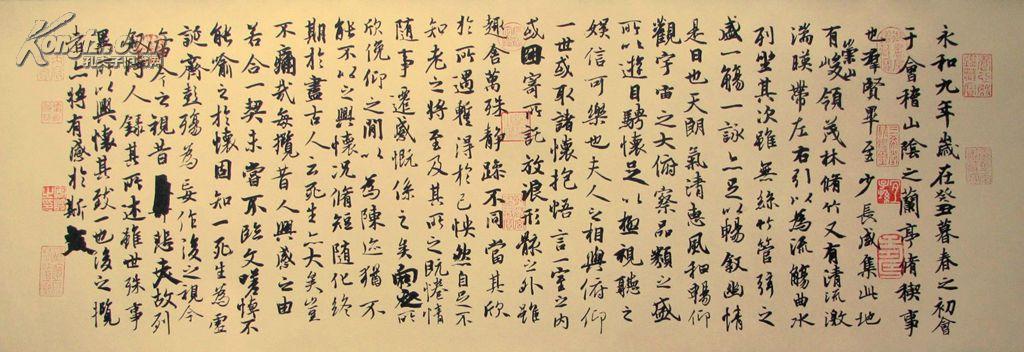 永和九年歲在癸丑暮春之初會
于會稽山陰之蘭亭脩稧事
也羣賢畢至少長咸集此地
有崇山峻領茂林脩竹又有清流激
湍暎帶左右引以為流觴曲水
列坐其次雖無絲竹管弦之
盛一觴一詠亦足以暢敘幽情
是日也天朗氣清惠風和暢仰
觀宇宙之大俯察品類之盛
所以遊目騁懷足以極視聽之
娛信可樂也夫人之相與俯仰
一世或取諸懷抱悟言一室之內
或因寄所託放浪形骸之外雖
趣舍萬殊靜躁不同當其欣
於所遇蹔得於己怏然自足不
知老之將至及其所之既惓情
隨事遷感慨係之矣向之所
欣俛仰之閒以為陳迹猶不
能不以之興懷況脩短隨化終
期於盡古人云死生亦大矣豈
不痛哉每攬昔人興感之由
若合一契未嘗不臨文嗟悼不
能喻之於懷固知一死生為虛
誕齊彭殤為妄作後之視今
今之視昔悲夫故列
時人錄其所述雖世殊事
異所以興懷其致一也後之攬
者將有感於斯文